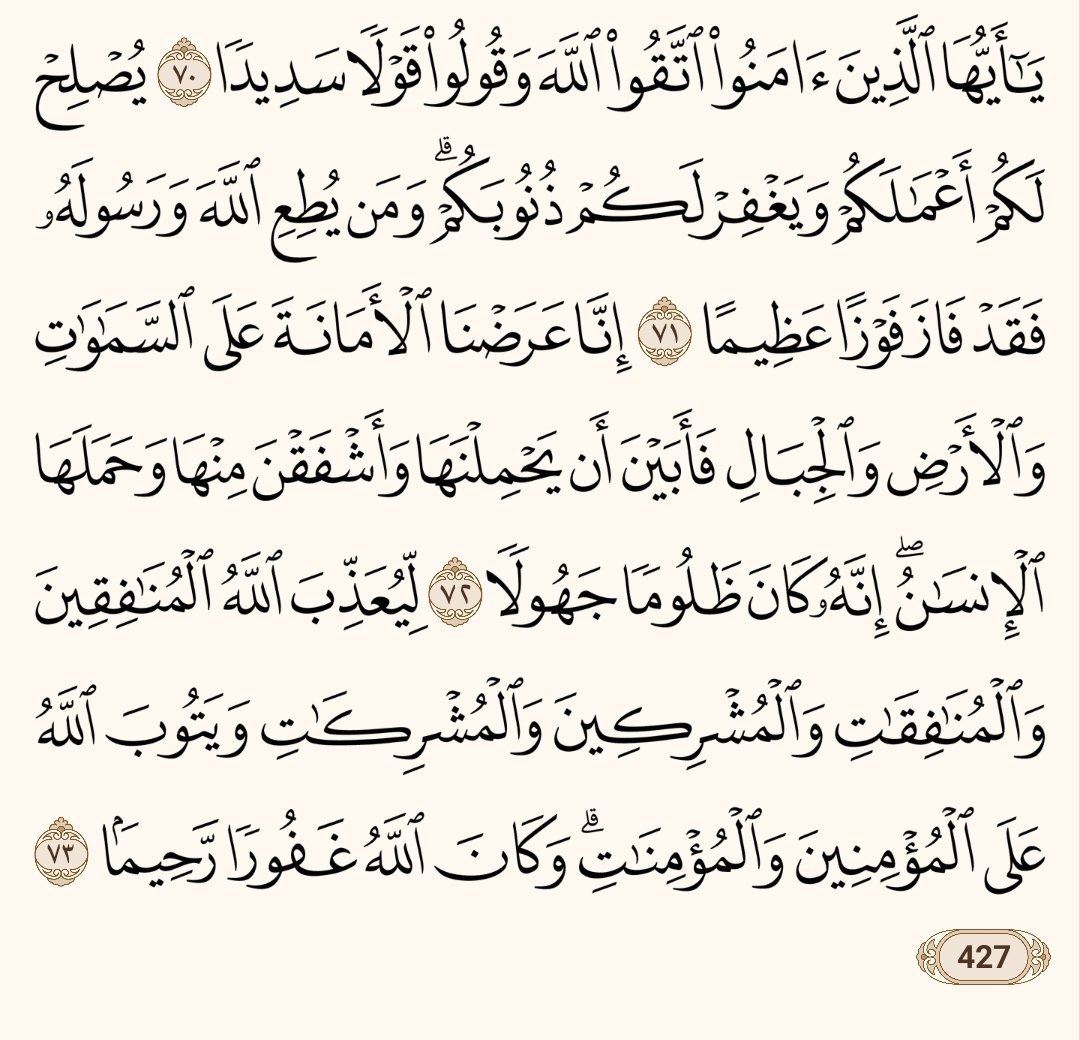 يَـٰٓأَيُّهَا ٱلَّذِينَ ءَامَنُوا۟ ٱتَّقُوا۟ ٱللَّهَ وَقُولُوا۟ قَوْلًا سَدِيدًا ٧٠ يُصْلِحْ
لَكُمْ أَعْمَـٰلَكُمْ وَيَغْفِرْ لَكُمْ ذُنُوبَكُمْ ۗ وَمَن يُطِعِ ٱللَّهَ وَرَسُولَهُۥ
فَقَدْ فَازَ فَوْزًا عَظِيمًا ٧١ إِنَّا عَرَضْنَا ٱلْأَمَانَةَ عَلَى ٱلسَّمَـٰوَٰتِ
وَٱلْأَرْضِ وَٱلْجِبَالِ فَأَبَيْنَ أَن يَحْمِلْنَهَا وَأَشْفَقْنَ مِنْهَا وَحَمَلَهَا
ٱلْإِنسَـٰنُ ۖ إِنَّهُۥ كَانَ ظَلُومًا جَهُولًا ٧٢ لِّيُعَذِّبَ ٱللَّهُ ٱلْمُنَـٰفِقِينَ
وَٱلْمُنَـٰفِقَـٰتِ وَٱلْمُشْرِكِينَ وَٱلْمُشْرِكَـٰتِ وَيَتُوبَ ٱللَّهُ
عَلَى ٱلْمُؤْمِنِينَ وَٱلْمُؤْمِنَـٰتِ ۗ وَكَانَ ٱللَّهُ غَفُورًا رَّحِيمًۢا ٧٣
427